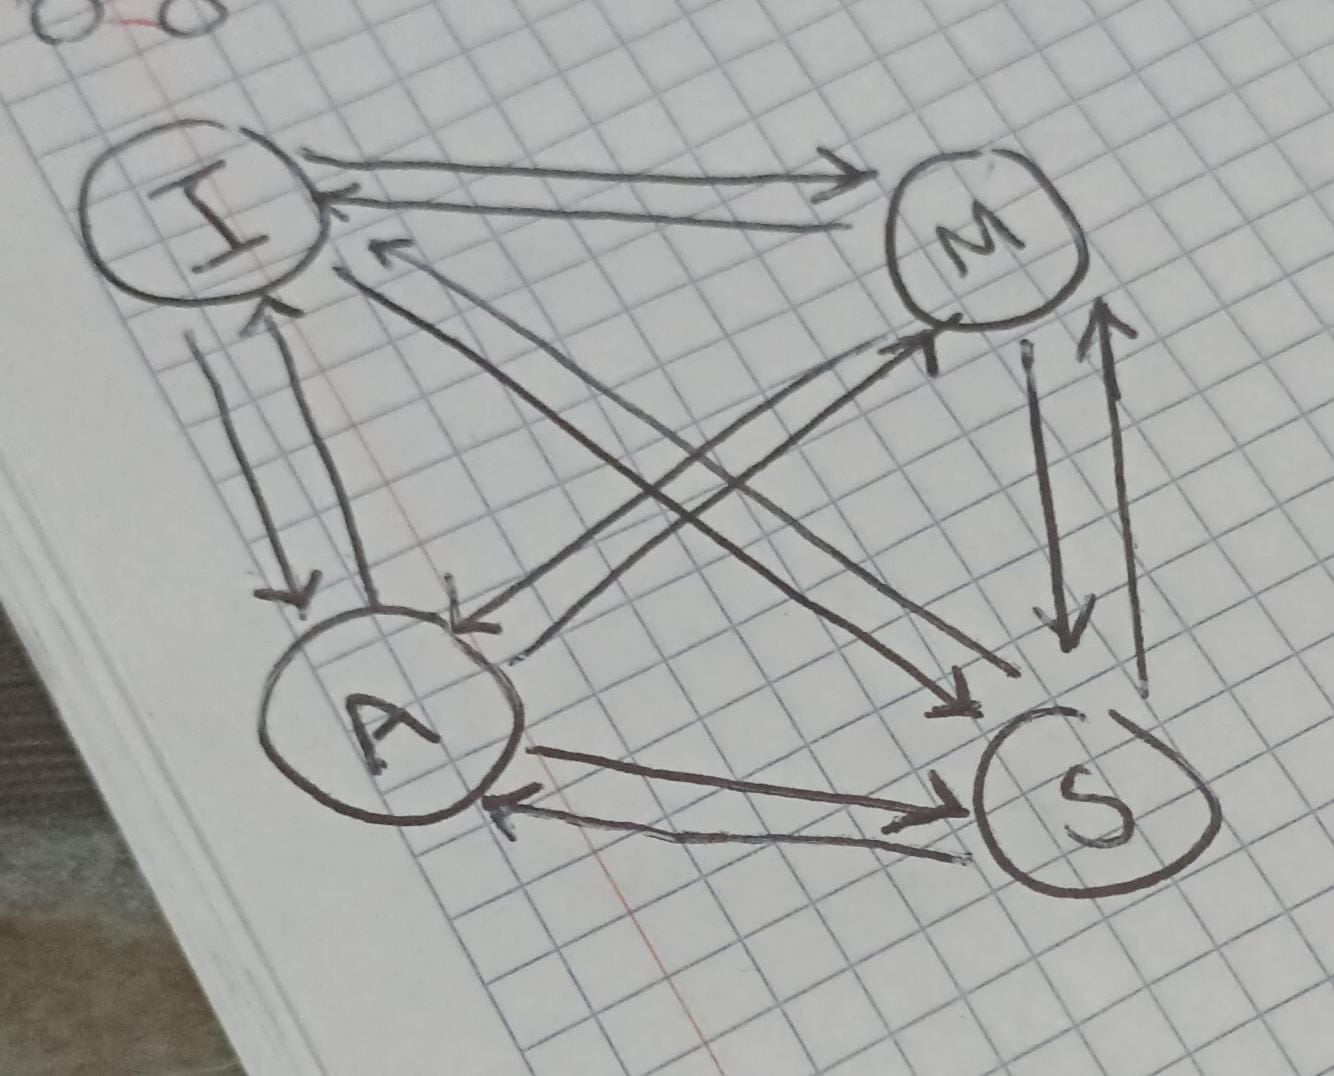 I
M
A
S